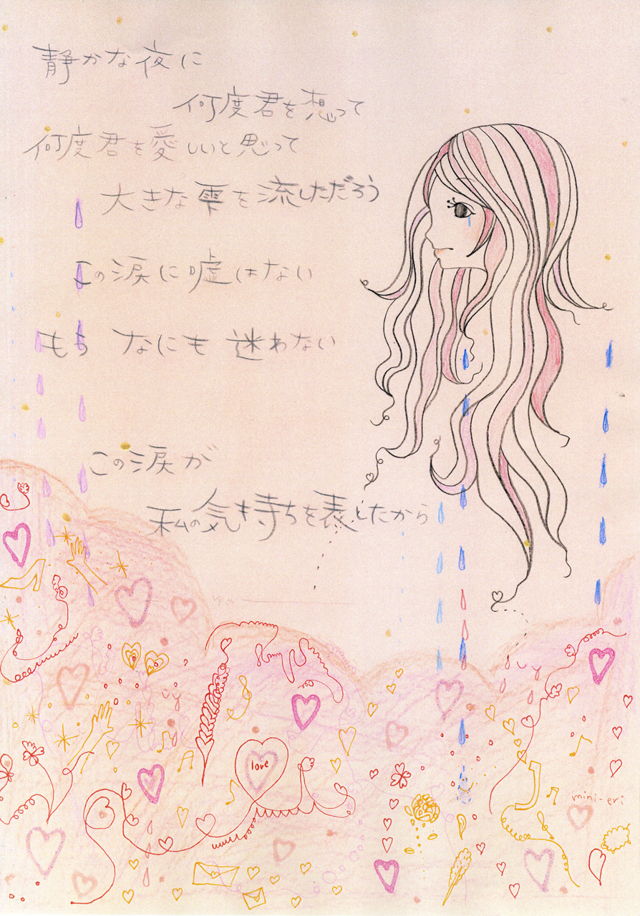 静かな夜に
何度君を想って
何度君を愛しいと思って
大きな雫を流しただろう
この涙に嘘はない
もう なにも 迷わない
この涙が
私の気持ちを表したから
love
mini-eri